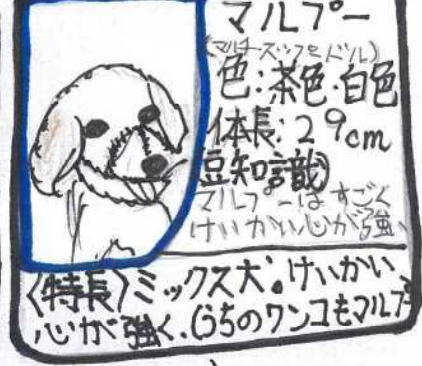 マルプー
(マルチーズップードル)
色:茶色・白色
体長:29cm
(豆知識)
マルプーはすごく
けいかい心が強
〈特長〉ミックス犬。けいかい
心が強く、(うちのワンコもマルプー